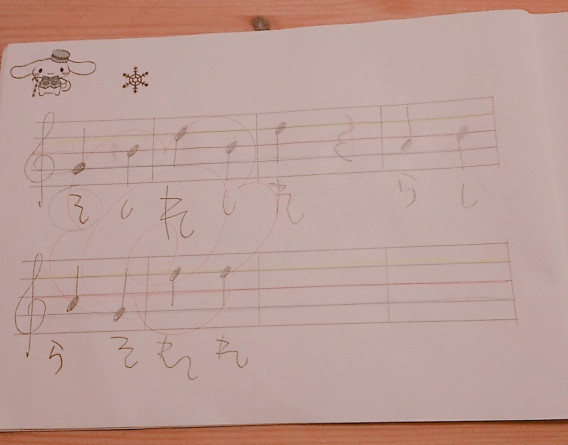 そ し れ し れ ら し
ら そ れ れ